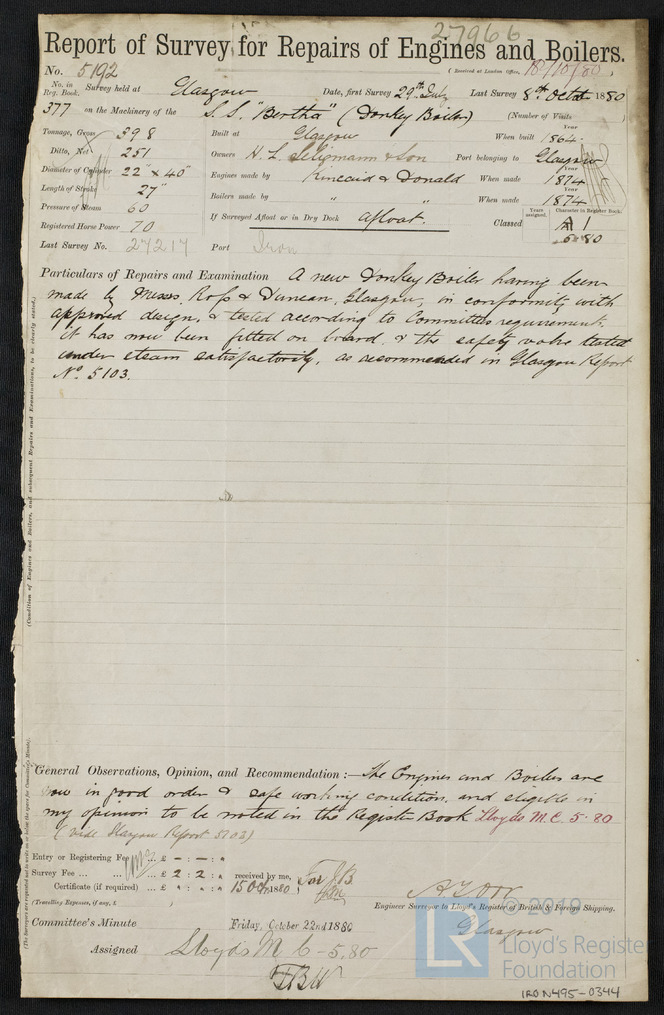 27966
Report of Survey for Repairs of Engines and Boilers.
(Received at London Office, 18/10/80)
No. 5192
No. in Reg. Book. Survey held at Glasgow Date, first Survey 29th July Last Survey 8th Octr 1880
377 on the Machinery of the S.S. "Bertha" (Donkey Boiler) (Number of Visits )
Tonnage, Gross 398 Built at Glasgow When built Year 1864
Ditto, Net 251 Owners H. L. Seligmann & Son Port belonging to Glasgow
Diameter of Cylinder 22" & 40" Engines made by Kincaid & Donald When made Year 1874
Length of Stroke 27" Boilers made by " " When made Year 1874
Pressure of Steam 60 If Surveyed Afloat or in Dry Dock afloat. Classed Years assigned. Character in Register Book. A 1
Registered Horse Power 70 5 80
Last Survey No. 27217 Port Iron
Particulars of Repairs and Examination A new Donkey Boiler having been
made by Messrs. Ross & Duncan, Glasgow, in conformity with
approved design, & tested according to Committees requirement,
it has now been fitted on board, & the safety valve tested
under steam satisfactorily, as recommended in Glasgow Report
No. 5103.
(Condition of Engines and Boilers, and subsequent Repairs and Examinations, to be clearly stated.)
General Observations, Opinion, and Recommendation:— The Engines and Boilers are
now in good order & safe working condition, and eligible in
my opinion to be noted in the Register Book Lloyds M.C. 5.80
(Vide Glasgow Report 5103)
Entry or Registering Fee ... £ - : - :
Survey Fee ... ... £ 2 : 2 : received by me,
Certificate (if required) ... £ : : 15 Oct 1880
(Travelling Expenses, if any, £ )
Engineer Surveyor to Lloyd's Register of British & Foreign Shipping.
Glasgow
Committee's Minute Friday, October 22nd 1880
Assigned Lloyds M C - 5.80
© 2019
LR
Lloyd's Register
Foundation
IRON495-0344